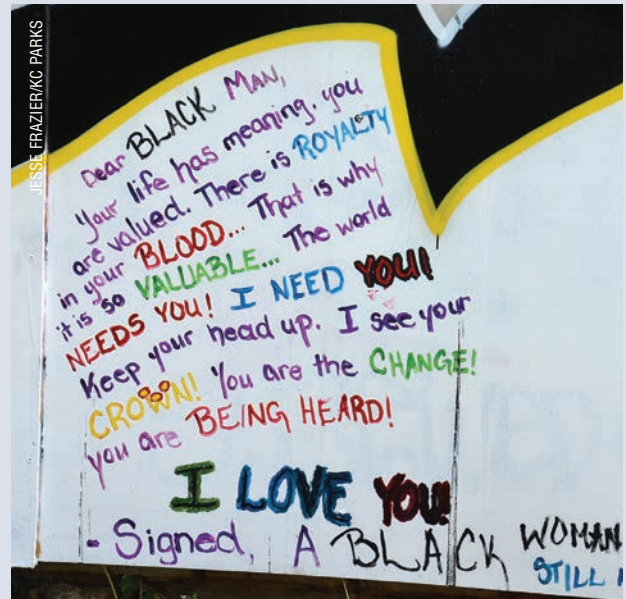 JESSE FRAZIER/KC PARKS
Dear BLACK MAN,
Your life has meaning. you
are valued. There is ROYALTY
in your BLOOD... That is why
it is so VALUABLE... The world
NEEDS YOU! I NEED YOU!
Keep your head up. I see your
CROWN! You are the CHANGE!
you are BEING HEARD!
I LOVE YOU!
- Signed, A BLACK WOMAN
STILL